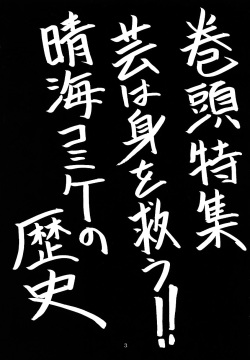 巻頭特集
芸は身を救う!!
晴海コミケの
歴史
3